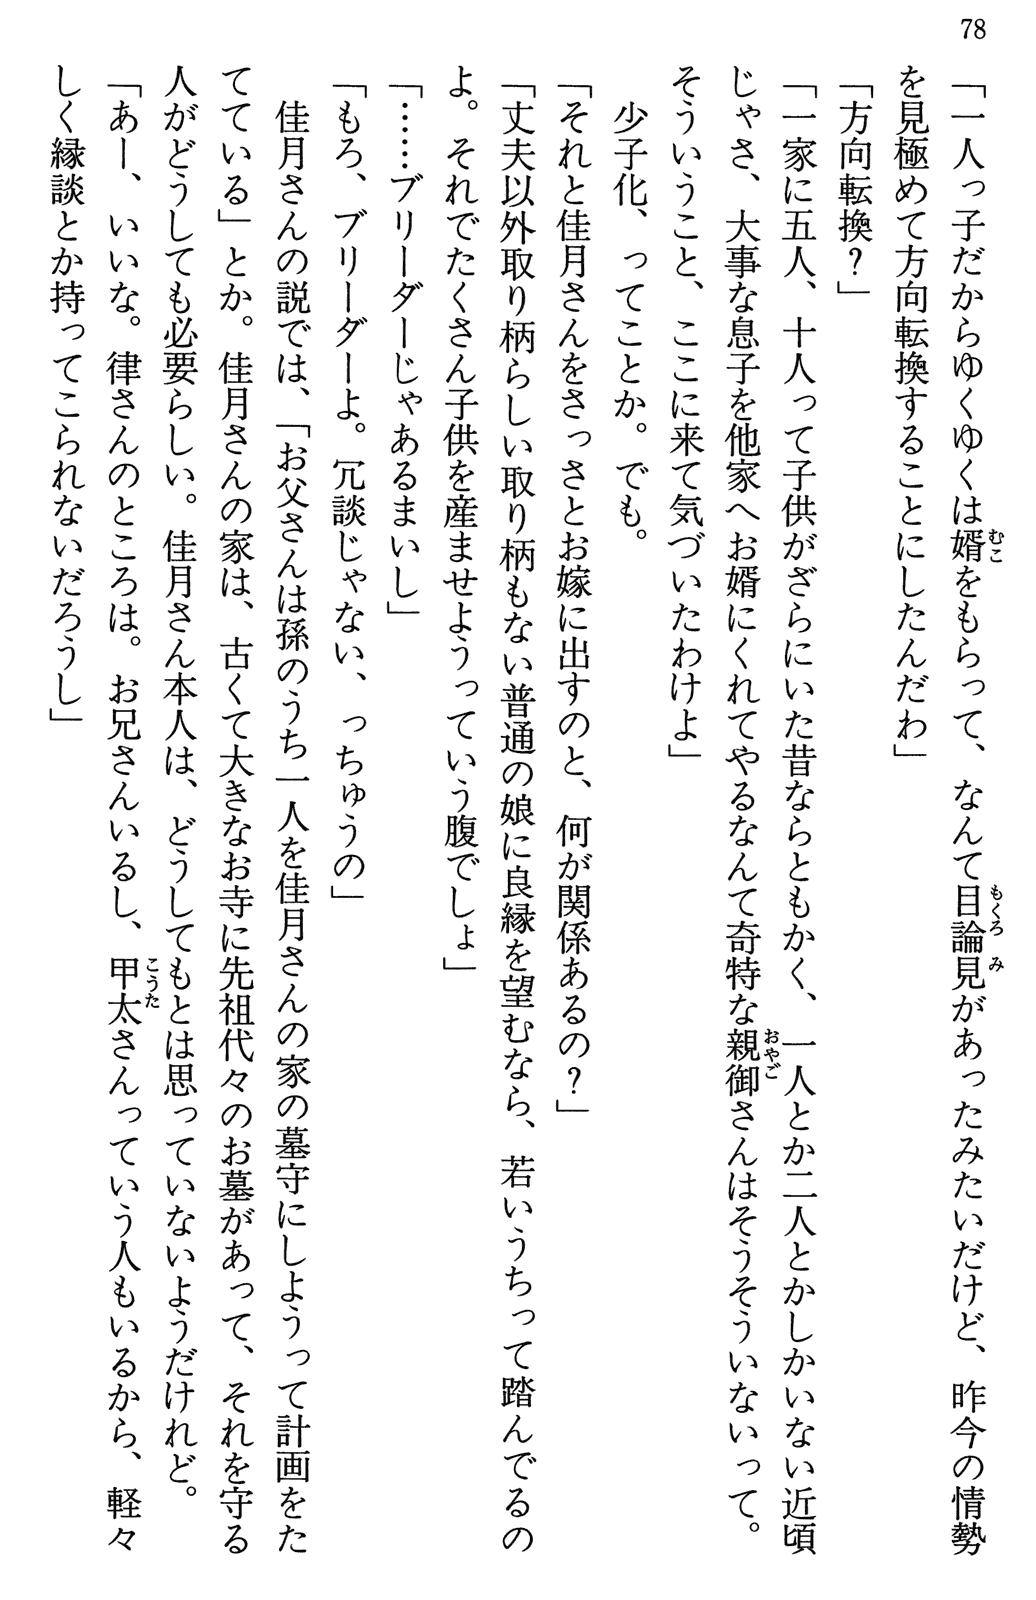 78
「一人っ子だからゆくゆくは婿をもらって、なんて目論見があったみたいだけど、昨今の情勢
を見極めて方向転換することにしたんだわ」
「方向転換？」
「一家に五人、十人って子供がざらにいた昔ならともかく、一人とか二人とかしかいない近頃
じゃさ、大事な息子を他家へお婿にくれてやるなんて奇特な親御さんはそうそういないって。
そういうこと、ここに来て気づいたわけよ」
少子化、ってことか。でも。
「それと佳月さんをさっさとお嫁に出すのと、何が関係あるの？」
「丈夫以外取り柄らしい取り柄もない普通の娘に良縁を望むなら、若いうちって踏んでるの
よ。それでたくさん子供を産ませようっていう腹でしょ」
「……ブリーダーじゃあるまいし」
「もろ、ブリーダーよ。冗談じゃない、っちゅうの」
佳月さんの説では、「お父さんは孫のうち一人を佳月さんの家の墓守にしようって計画をた
てている」とか。佳月さんの家は、古くて大きなお寺に先祖代々のお墓があって、それを守る
人がどうしても必要らしい。佳月さん本人は、どうしてもとは思っていないようだけれど。
「あー、いいな。律さんのところは。お兄さんいるし、甲太さんっていう人もいるから、軽々
しく縁談とか持ってこられないだろうし」
むこ
もくろみ
おやご
こうた